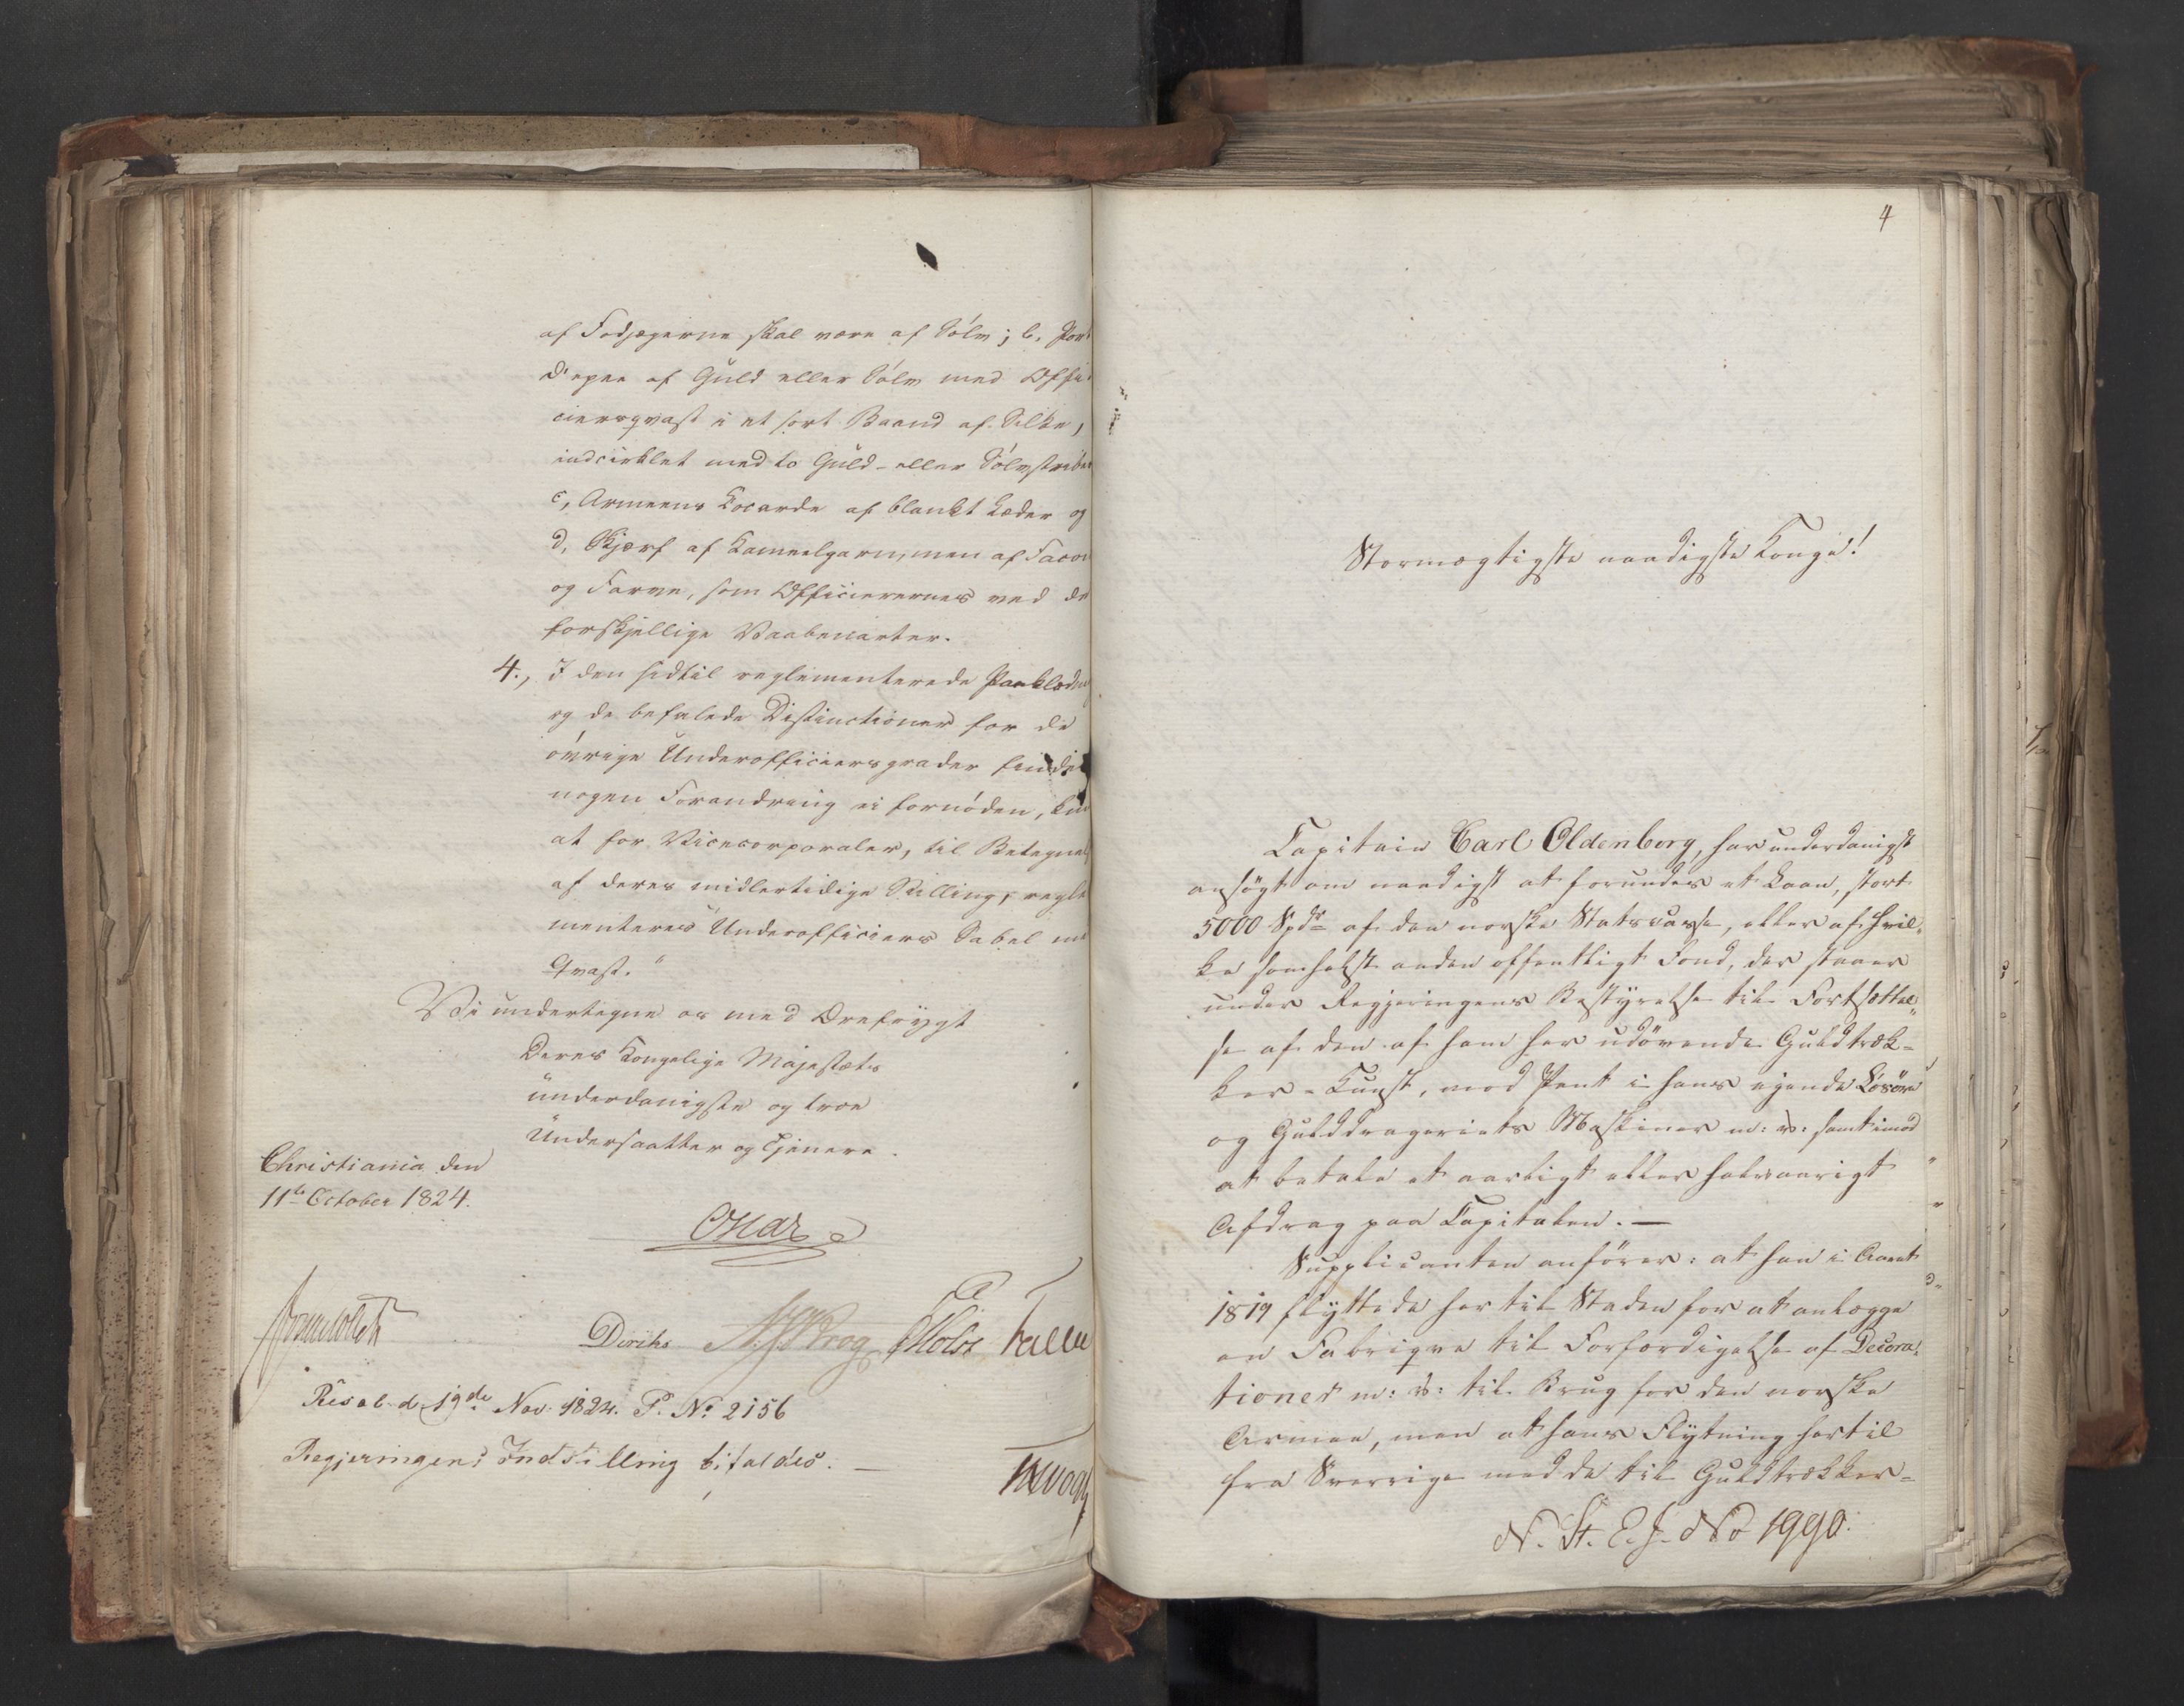 af Fodjægerne skal være af Sölv; b, Port
d'epee af Guld eller Sölv med Offi-
ciersqvast i et sort Baand af Silke,
indvirklet med to Guld- eller Sölvstriber
c, Armeens Kocarde af blankt Læder og
d, Skjærf af Kameelgarn, men af Facon
og Farve, som Officierernes ved de
forskjellige Vaabenarter.
4., I den hidtil reglementerede Paaklædni
og de befalede Distinctioner for de
övrige Underofficiersgrader findes
nogen Forandring ei fornöden, kun
at for Vicecorporaler, til Betegnel
af deres midlertidige Stilling, regle
menteres Underofficiers Sabel med
Qvast."
Vi undertegne os med Ærefrygt
Deres Kongelige Majestæts
underdanigste og troe
Undersaatter og Tjenere.
Christiania den
11te October 1824.
Diriks Krog Holst
Resol. d. 19de Nov. 1824. P. No 2156
Regjeringens Indstilling bifaldes. —
4
Stormægtigste naadigste Konge!
Capitain Carl Oldenborg, har underdanigst
ansögt om naadigst at forundes et Laan, stort
5000 Spdr af den norske Statscasse, eller af hvil-
ke somhelst anden offentligt Fond, der staaer
under Regjeringens Bestyrelse til Fortsættel-
se af den af ham her udövende Guldtræk-
ker-Kunst, mod Pant i hans eiende Lösöre
og Gulddrageriets Maskiner m: v: samt imod
at betale et aarligt eller halvaarigt
Afdrag paa Capitalen. —
Supplicanten anförer: at han i Aaret
1819 flyttede her til Staden for at anlægge
en Fabriqve til Forfærdigelse af Decora-
tioner m: v: til Brug for den norske
Armee, men at hans Flytning hertil
fra Sverrige med de til Guldtrækker-
N. St. E. J. No 1990.